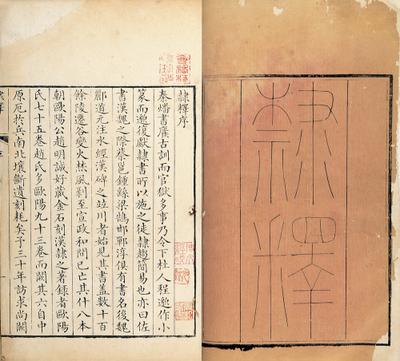 隸釋
隸釋序
秦燔書廢古訓而官獄多事乃令下杜人程邈作小
篆而邈復獻隸書所以施之徒隸趨簡易也亦曰佐
書漢魏之際蔡邕鍾繇梁鵠邯鄲淳俱有書名後魏
酈道元注水經漢碑之竝川者始見其書蓋數十百
餘陵遷谷變火焚風剝至宣政和間已亡其什八本
朝歐陽公趙明誠好藏金石刻漢隸之著錄者歐陽
氏七十五卷趙氏多歐陽九十三卷而闕其六自中
原厄於兵南北壤斷遺刻耗矣予三十年訪求尚闕